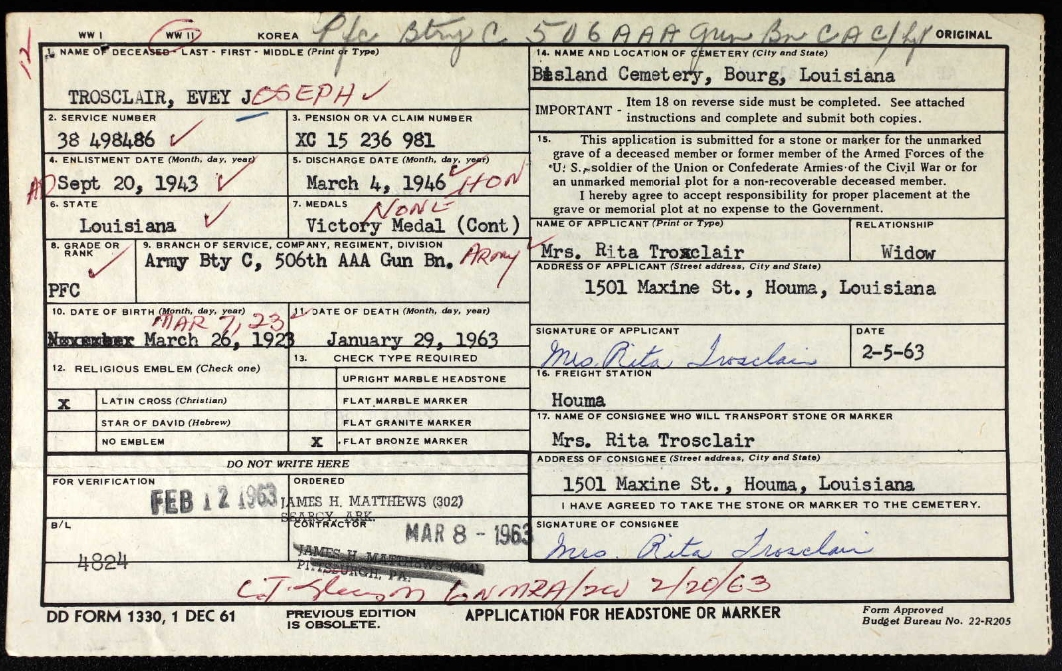 WW I WW II KOREA Pfc Btry C 506 AAA Gun Bn CAC ORIGINAL
12
1. NAME OF DECEASED - LAST - FIRST - MIDDLE (Print or Type)
TROSCLAIR, EVEY JOSEPH ✓
2. SERVICE NUMBER
38 498486 ✓
3. PENSION OR VA CLAIM NUMBER
XC 15 236 981
4. ENLISTMENT DATE (Month, day, year)
AD Sept 20, 1943 ✓
5. DISCHARGE DATE (Month, day, year)
March 4, 1946 ✓ HON
6. STATE
Louisiana ✓
7. MEDALS
NONE
Victory Medal (Cont)
8. GRADE OR RANK ✓
PFC
9. BRANCH OF SERVICE, COMPANY, REGIMENT, DIVISION
Army Bty C, 506th AAA Gun Bn. ARMY ✓
10. DATE OF BIRTH (Month, day, year)
MAR 7, 23 ✓
March 26, 1923
11. DATE OF DEATH (Month, day, year)
January 29, 1963
12. RELIGIOUS EMBLEM (Check one)
X LATIN CROSS (Christian)
STAR OF DAVID (Hebrew)
NO EMBLEM
13. CHECK TYPE REQUIRED
UPRIGHT MARBLE HEADSTONE
FLAT MARBLE MARKER
FLAT GRANITE MARKER
X FLAT BRONZE MARKER
DO NOT WRITE HERE
FOR VERIFICATION
FEB 12 1963
ORDERED
JAMES H. MATTHEWS (302)
SEARCY, ARK.
B/L
4824
CONTRACTOR
MAR 8 - 1963
JAMES H. MATTHEWS (304)
PITTSBURGH, PA.
14. NAME AND LOCATION OF CEMETERY (City and State)
Bisland Cemetery, Bourg, Louisiana
IMPORTANT - Item 18 on reverse side must be completed. See attached
instructions and complete and submit both copies.
15. This application is submitted for a stone or marker for the unmarked
grave of a deceased member or former member of the Armed Forces of the
U. S., soldier of the Union or Confederate Armies of the Civil War or for
an unmarked memorial plot for a non-recoverable deceased member.
I hereby agree to accept responsibility for proper placement at the
grave or memorial plot at no expense to the Government.
NAME OF APPLICANT (Print or Type)
Mrs. Rita Trosclair
RELATIONSHIP
Widow
ADDRESS OF APPLICANT (Street address, City and State)
1501 Maxine St., Houma, Louisiana
SIGNATURE OF APPLICANT
Mrs. Rita Trosclair
DATE
2-5-63
16. FREIGHT STATION
Houma
17. NAME OF CONSIGNEE WHO WILL TRANSPORT STONE OR MARKER
Mrs. Rita Trosclair
ADDRESS OF CONSIGNEE (Street address, City and State)
1501 Maxine St., Houma, Louisiana
I HAVE AGREED TO TAKE THE STONE OR MARKER TO THE CEMETERY.
SIGNATURE OF CONSIGNEE
Mrs. Rita Trosclair
2/20/63
DD FORM 1330, 1 DEC 61
PREVIOUS EDITION
IS OBSOLETE.
APPLICATION FOR HEADSTONE OR MARKER
Form Approved
Budget Bureau No. 22-R205